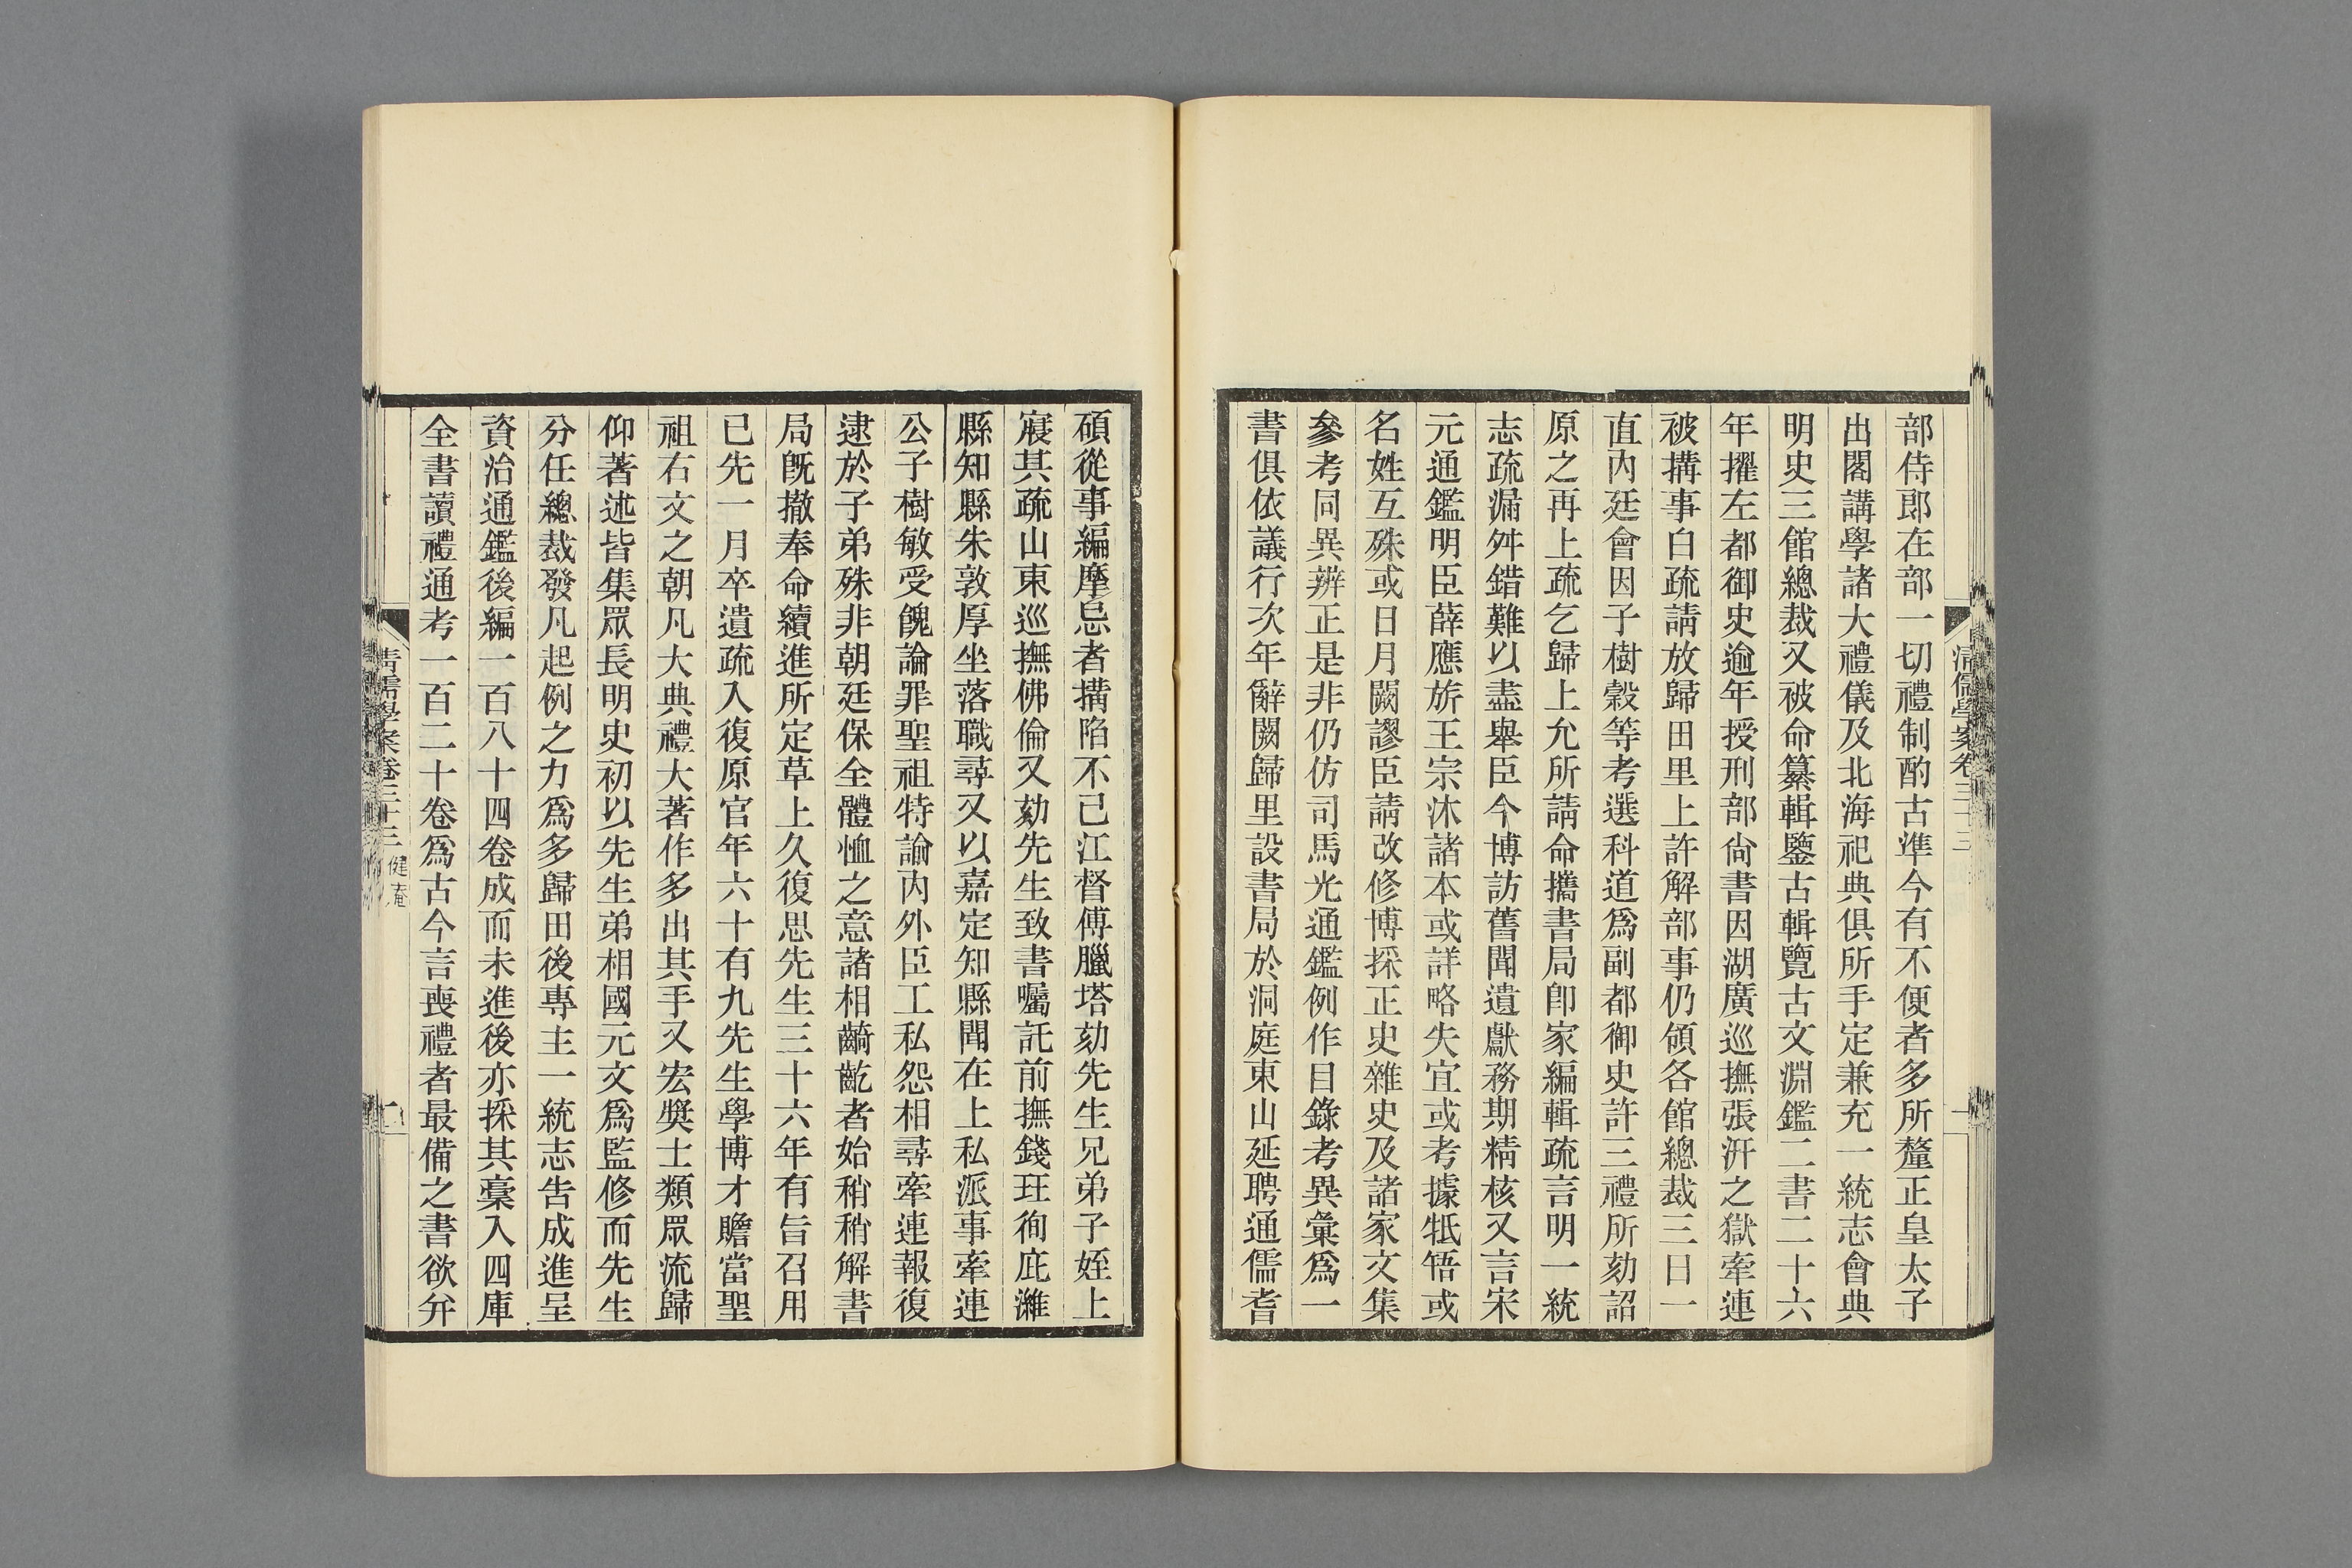 部侍郎在部一切禮制酌古準今有不便者多所釐正皇太子
出閣講學諸大禮儀及北海祀典俱所手定兼充一統志會典
明史三館總裁又被命纂輯鑒古輯覽古文淵鑑二書二十六
年擢左都御史逾年授刑部尙書因湖廣巡撫張汧之獄牽連
被搆事白疏請放歸田里上許解部事仍領各館總裁三日一
直內廷會因子樹穀等考選科道爲副都御史許三禮所劾詔
原之再上疏乞歸上允所請命攜書局卽家編輯疏言明一統
志疏漏舛錯難以盡舉臣今博訪舊聞遺獻務期精核又言宋
元通鑑明臣薛應旂王宗沐諸本或詳略失宜或考據牴牾或
名姓互殊或日月闕謬臣請改修博採正史雜史及諸家文集
參考同異辨正是非仍仿司馬光通鑑例作目錄考異彙爲一
書俱依議行次年辭闕歸里設書局於洞庭東山延聘通儒耆
清儒學案卷三十三
一
碩從事編摩忌者搆陷不已江督傅臘塔劾先生兄弟子姪上
寢其疏山東巡撫佛倫又劾先生致書囑託前撫錢珏徇庇濰
縣知縣朱敦厚坐落職尋又以嘉定知縣聞在上私派事牽連
公子樹敏受餽論罪聖祖特諭內外臣工私怨相尋牽連報復
逮於子弟殊非朝廷保全體恤之意諸相齮齕者始稍稍解書
局既撤奉命續進所定草上久復思先生三十六年有旨召用
已先一月卒遺疏入復原官年六十有九先生學博才贍當聖
祖右文之朝凡大典禮大著作多出其手又宏獎士類眾流歸
仰著述皆集眾長明史初以先生弟相國元文爲監修而先生
分任總裁發凡起例之力爲多歸田後專主一統志告成進呈
資治通鑑後編一百八十四卷成而未進後亦採其稾入四庫
全書讀禮通考一百二十卷爲古今言喪禮者最備之書欲幷
清儒學案卷三十三
健庵
二